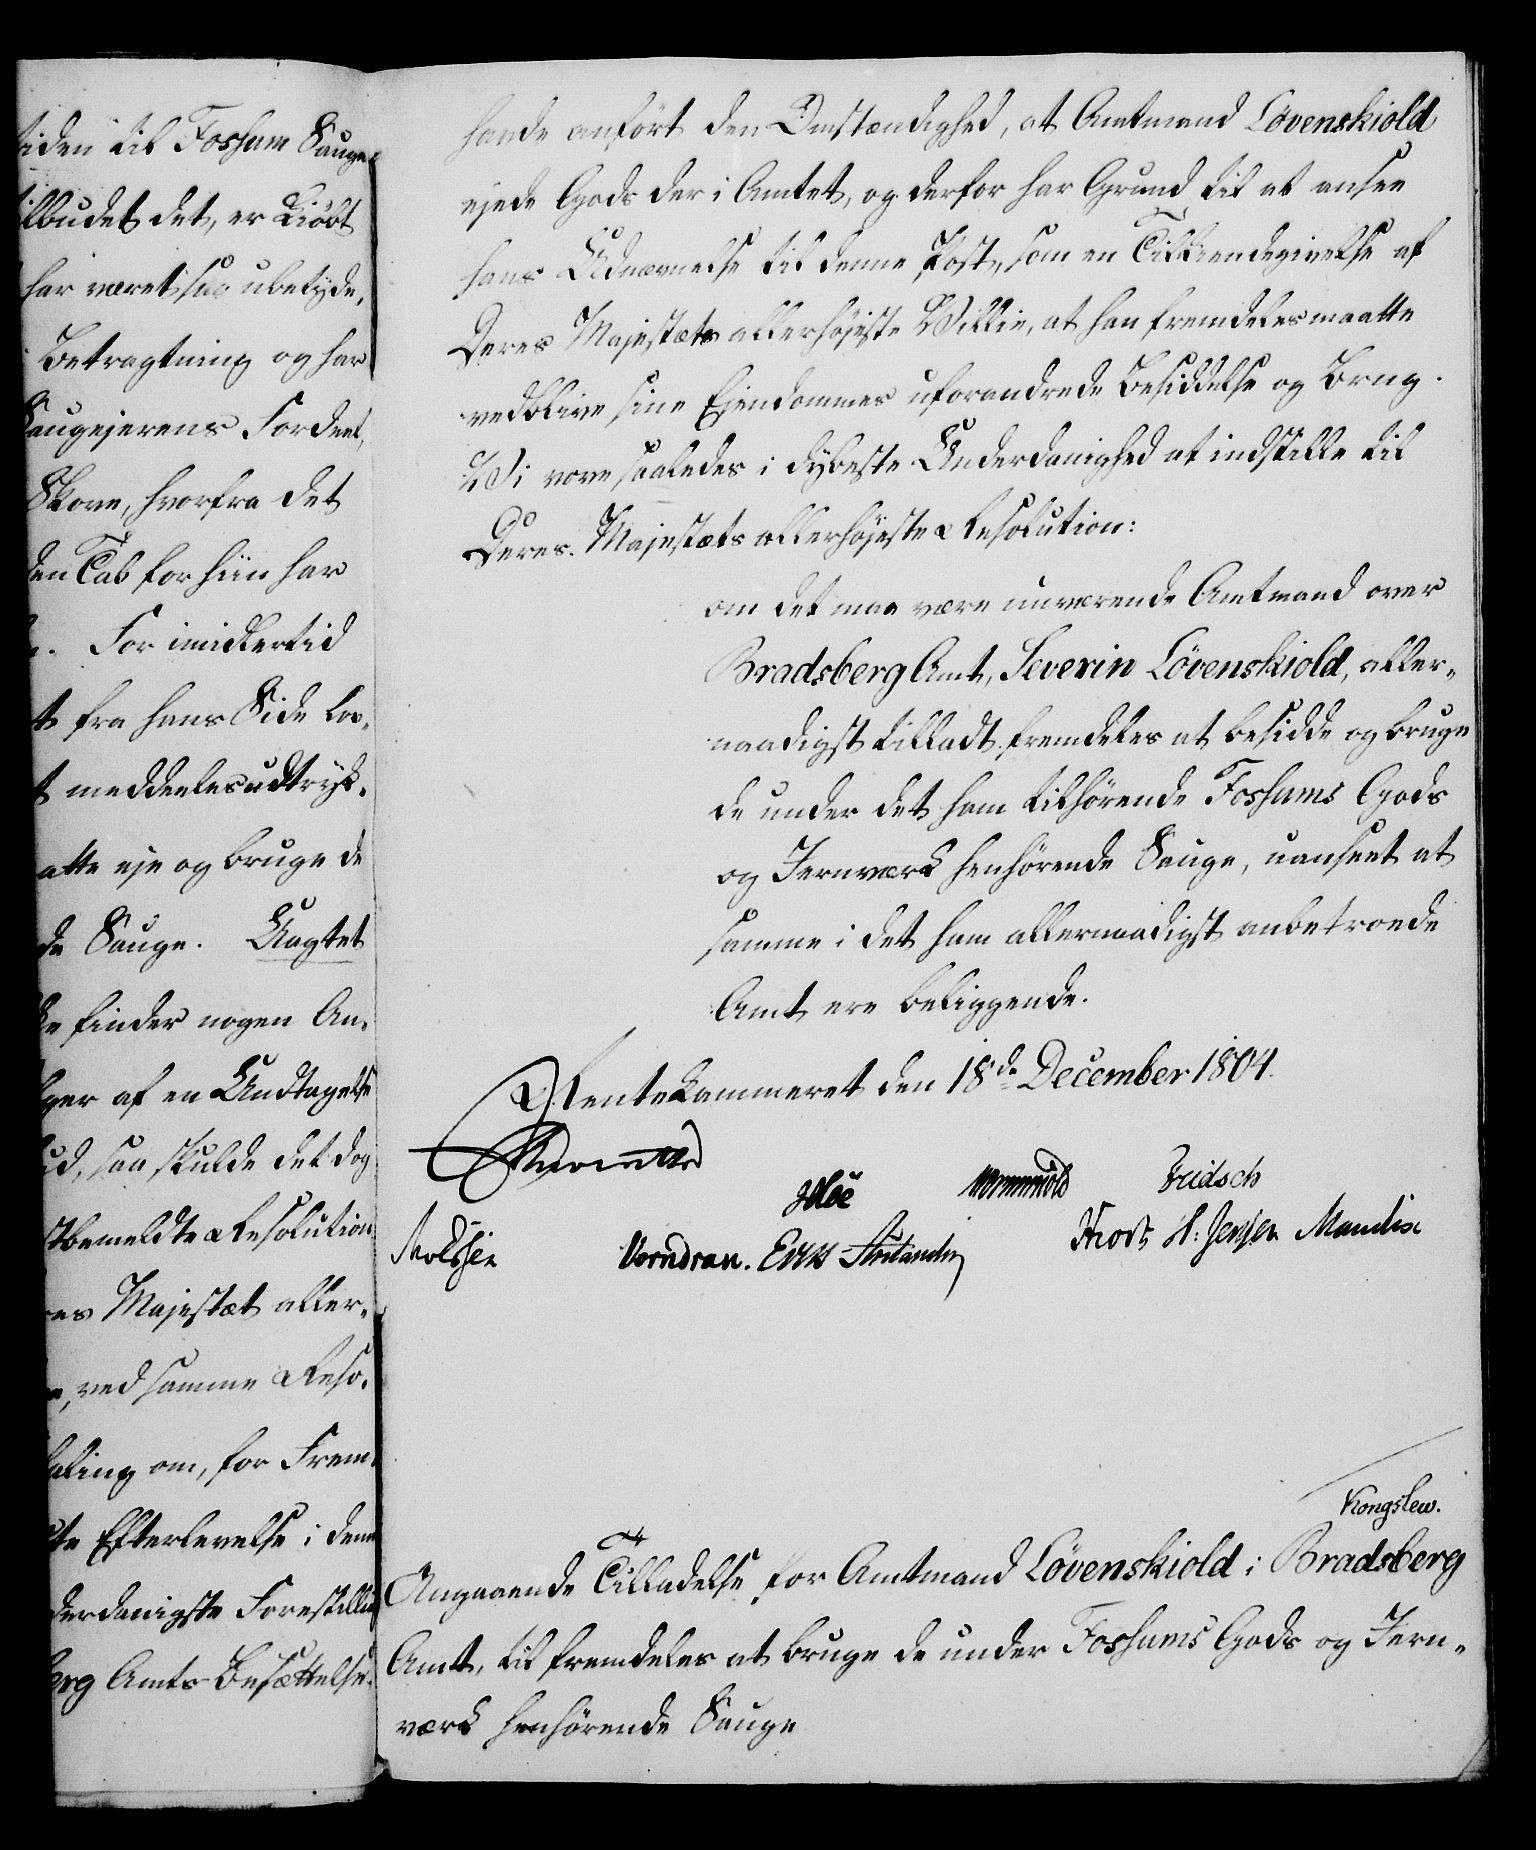 tiden til Fossum Sauge
ilbudet det, er Kiöbt
har været saa ubetyde,
Betragtning og har
Saugejerens Fordeel,
Skove, hvorfra det
den Tab for hiin har
For imidlertid
t fra hans Side lov,
t meddeeles udtryk,
atte eje og bruge de
de Sauge. Uagtet
ke finder nogen An,
lger af en Undtagelse
ud, saa skulde det dog
stbemeldte Resolution
res Majestæt aller,
e, ved samme Reso,
laling om, for Frem,
ste Efterlevelse i denn
derdanigste Forestillin
erg Amts Besættelse.
havde anført den Omstændighed, at Amtmand Lövenskiold
ejede Gods der i Amtet, og derfor har Grund til at ansee
hans Udnævnelse til denne Post, som en Tilkiendegivelse af
Deres Majestæts allerhöjeste Willie, at han fremdeles maatte
vedblive sine Ejendommes uforandrede Besiddelse og Brug.
Wi vove saaledes i dybeste Underdanighed at indstille til
Deres Majestæts allerhöjeste Resolution:
om det maa være nuværende Amtmand over
Bradsberg Amt, Severin Lövenskiold, aller-
naadigst tilladt fremdeles at besidde og bruge
de under det ham tilhörende Fossums Gods
og Jernværk henhörende Sauge, uanseet at
samme i det ham allernaadigst anbetroede
Amt ere beliggende.
Rentekammeret den 18de December 1804.
Reventlow
Hoe Wormskiold Fridsch
Rolssen Verndran. Knoph H: Jensen Manthei
Kongslew.
Angaaende Tilladelse for Amtmand Lövenskiold i Bradsberg
Amt, til fremdeles at bruge de under Fossums Gods og Jern-
værk henhörende Sauge